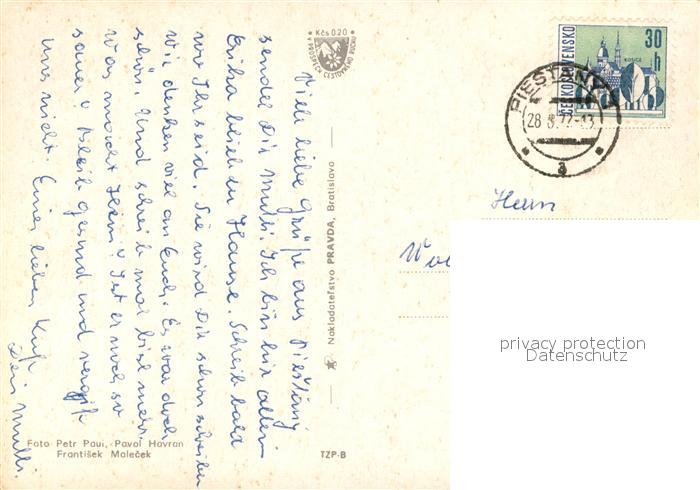 Viele liebe Grüße aus Piešťany
sendet Dir Mutti. Ich bin hir allein
Erika blieb zu Hause. Schreib bald
wo Ihr seid. Sie wird Dir schon schreiben
Wir denken viel an Euch. Es war doch
schön. Und schreib mal bissl mehr
Was macht Heini? Ist er noch so
sauer? Bleib gesund und vergiß
uns nicht. Einen lieben Kuß
Dein Mutti.
Kčs 0,20
V PROSPECH CESTOVNÉHO RUCHU
Nakladateľstvo PRAVDA, Bratislava
Foto Petr Paul, Pavol Havran
František Maleček
TZP-B
ČESKOSLOVENSKO
30 h
KOŠICE
PIEŠŤANY 1
28.8.72-13
a
Herrn
privacy protection
Datenschutz